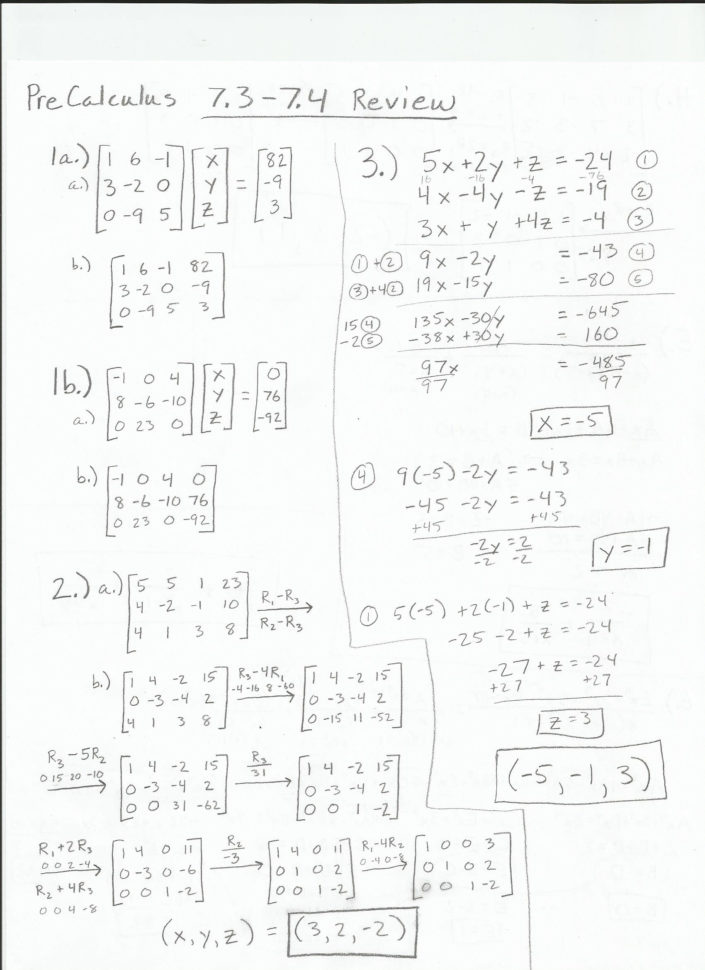 PreCalculus 7.3-7.4 Review
1a.)
a.) [1 6 -1] [x] = [82]
[3 -2 0] [y] = [-9]
[0 -9 5] [z] = [3]
b.) [1 6 -1 82]
[3 -2 0 -9]
[0 -9 5 3]
1b.)
a.) [-1 0 4] [x] = [0]
[8 -6 -10] [y] = [76]
[0 23 0] [z] = [-92]
b.) [-1 0 4 0]
[8 -6 -10 76]
[0 23 0 -92]
2.) a.) [5 5 1 23]
[4 -2 -1 10]
[4 1 3 8]
R1-R3
R2-R3
b.) [1 4 -2 15]
[0 -3 -4 2]
[4 1 3 8]
R3-4R1
-4 -16 8 -60
[1 4 -2 15]
[0 -3 -4 2]
[0 -15 11 -52]
R3-5R2
0 15 20 -10
[1 4 -2 15]
[0 -3 -4 2]
[0 0 31 -62]
R3/31
[1 4 -2 15]
[0 -3 -4 2]
[0 0 1 -2]
R1+2R3
0 0 2 -4
R2+4R3
0 0 4 -8
[1 4 0 11]
[0 -3 0 -6]
[0 0 1 -2]
R2/-3
[1 4 0 11]
[0 1 0 2]
[0 0 1 -2]
R1-4R2
0 -4 0 -8
[1 0 0 3]
[0 1 0 2]
[0 0 1 -2]
(x,y,z) = (3,2,-2)
3.) 5x+2y+z = -24 ①
16 -16 -4 -76
4x-4y-z = -19 ②
3x+y+4z = -4 ③
①+② 9x-2y = -43 ④
③+4② 19x-15y = -80 ⑤
15④ 135x-30y = -645
-2⑤ -38x+30y = 160
97x/97 = -485/97
x=-5
④ 9(-5)-2y = -43
-45-2y = -43
+45 +45
-2y/-2 = 2/-2
y=-1
① 5(-5)+2(-1)+z = -24
-25-2+z = -24
-27+z = -24
+27 +27
z=3
(-5,-1,3)